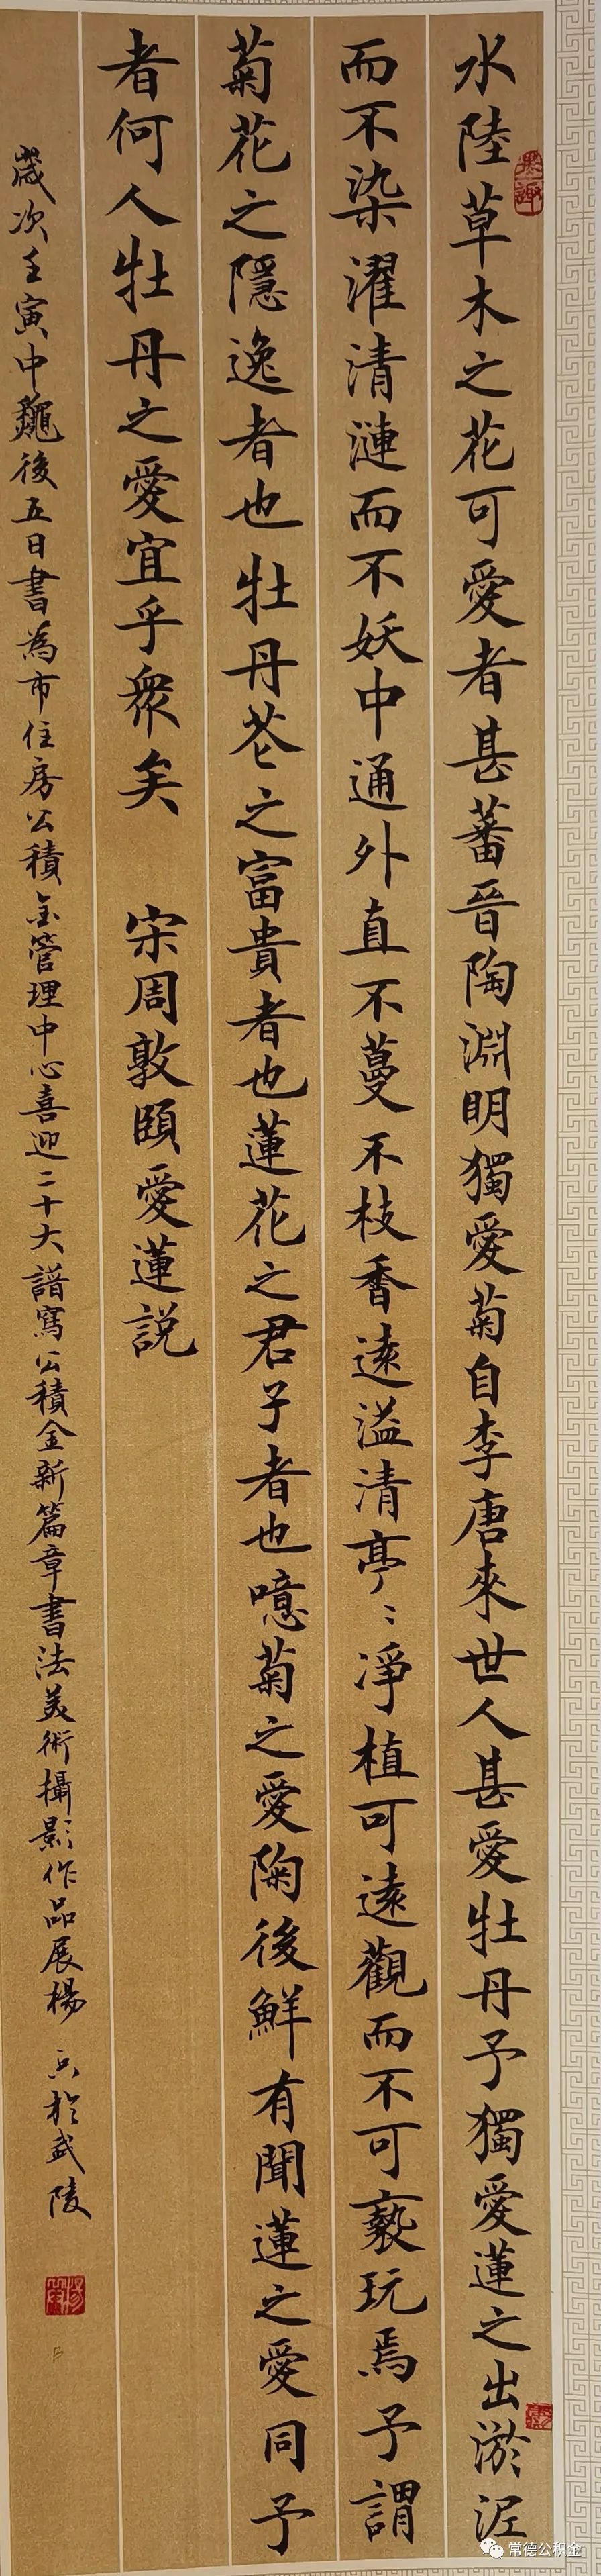 水陸草木之花可愛者甚蕃晉陶淵明獨愛菊自李唐來世人甚愛牡丹予獨愛蓮之出淤泥
而不染濯清漣而不妖中通外直不蔓不枝香遠溢清亭〻凈植可遠觀而不可褻玩焉予謂
菊花之隱逸者也牡丹芲之富貴者也蓮花之君子者也噫菊之愛陶後鮮有聞蓮之愛同予
者何人牡丹之愛宜乎衆矣 宋周敦頤愛蓮説
歲次壬寅中龝後五日書為市住房公積金管理中心喜迎二十大譜寫公積金新篇章書法美術攝影作品展楊 於武陵
常德公积金